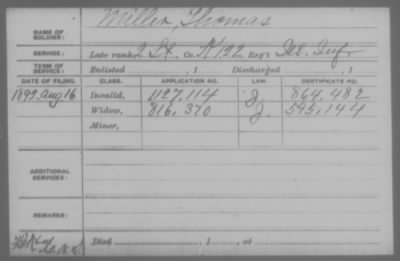 Miller, Thomas
NAME OF SOLDIER:
SERVICE: Late rank, 2 Lt. Co. K, 122 Reg't Inf.
TERM OF SERVICE: Enlisted , 1 Discharged , 1
DATE OF FILING. CLASS. APPLICATION NO. LAW. CERTIFICATE NO.
1892 Aug 16 Invalid, 1127,114 J. 864,482
Widow, 816,370 J. 595,144
Minor,
ADDITIONAL SERVICES:
REMARKS:
Died , 1 , at